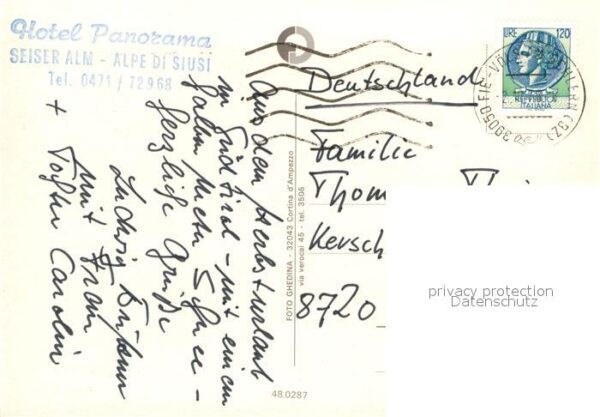 Hotel Panorama
SEISER ALM - ALPE DI SIUSI
Tel. 0471 / 72968
Aus dem Herbsturlaub
in Südtirol - mit einem
halben Meter Schnee -
herzliche Grüße
Ludwig
mit Frau
+ Tochter Carolin
FOTO GHEDINA - 32043 Cortina d'Ampezzo
via verocai 45 - tel. 3506
48.0287
LIRE 120
REPUBBLICA
ITALIANA
39050 FIE-VÖ (BZ)
Deutschland
Familie
Thom
Kersch
8720
privacy protection
Datenschutz